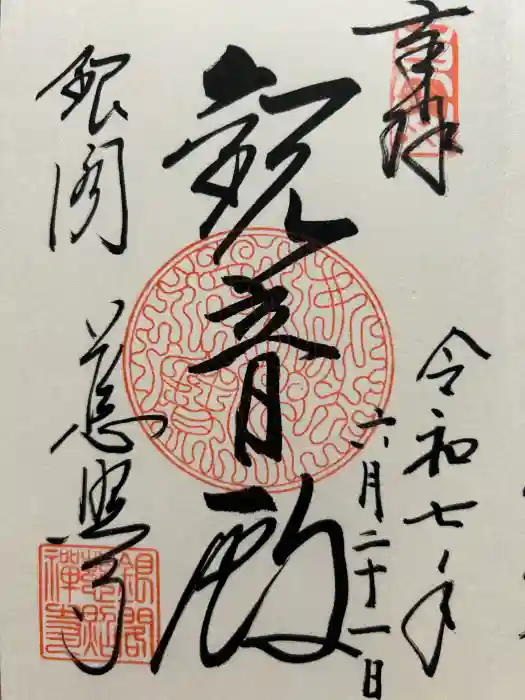 奉拝
令和七年
六月二十一日
観音殿
銀閣
慈照寺
銀閣
慈照
禅寺